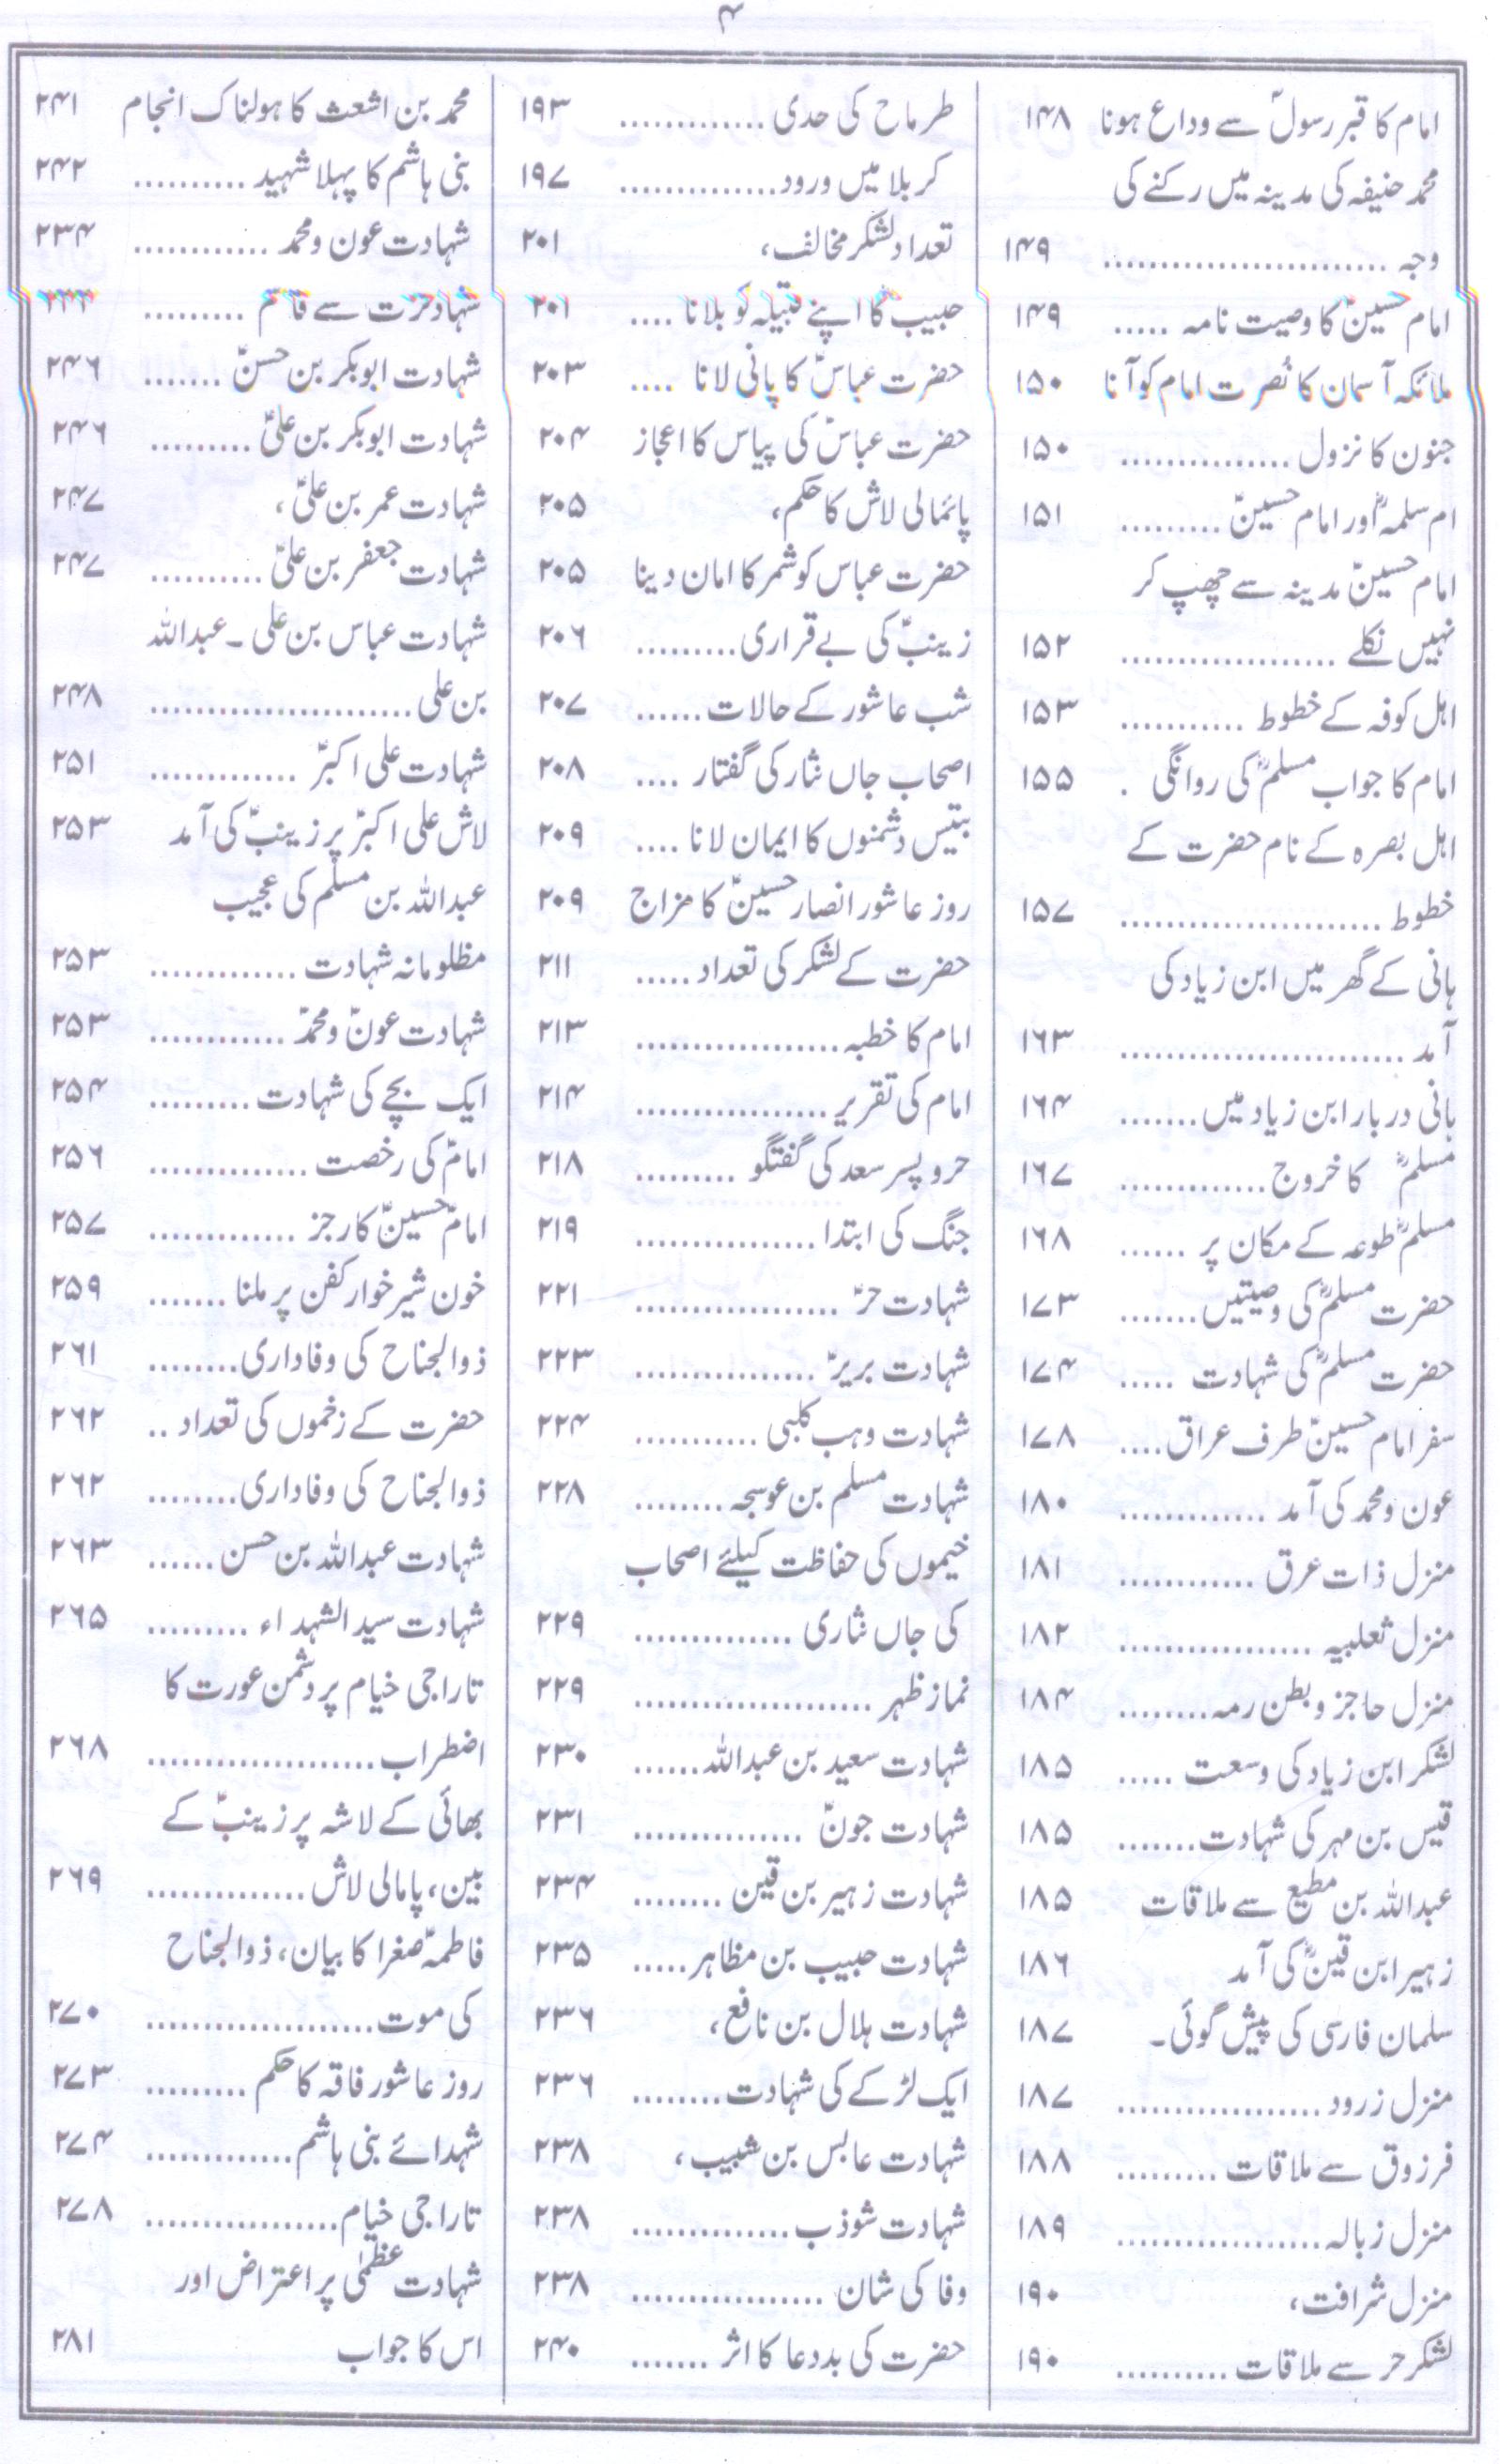 ۴
امام کا قبر رسولؐ سے وداع ہونا ۱۴۸
محمد حنیفہ کی مدینہ میں رکنے کی
وجہ .......................... ۱۴۹
امام حسینؑ کا وصیت نامہ ..... ۱۴۹
ملائکہ آسمان کا نصرت امام کو آنا ۱۵۰
جنون کا نزول ............... ۱۵۰
ام سلمہؓ اور امام حسینؑ ......... ۱۵۱
امام حسینؑ مدینہ سے چھپ کر
نہیں نکلے ................... ۱۵۲
اہل کوفہ کے خطوط ........... ۱۵۳
امام کا جواب مسلمؓ کی روانگی . ۱۵۵
اہل بصرہ کے نام حضرت کے
خطوط ........................ ۱۵۷
ہانی کے گھر میں ابن زیاد کی
آمد .......................... ۱۶۳
ہانی دربار ابن زیاد میں....... ۱۶۴
مسلمؓ کا خروج ............. ۱۶۷
مسلمؓ طوعہ کے مکان پر ...... ۱۶۸
حضرت مسلمؓ کی وصیتیں....... ۱۷۳
حضرت مسلمؓ کی شہادت ..... ۱۷۴
سفر امام حسینؑ طرف عراق.... ۱۷۸
عون و محمد کی آمد ............. ۱۸۰
منزل ذات عرق ............ ۱۸۱
منزل ثعلبیہ ................. ۱۸۲
منزل حاجز و بطن رمہ........ ۱۸۴
لشکر ابن زیاد کی وسعت ..... ۱۸۵
قیس بن مہر کی شہادت....... ۱۸۵
عبداللہ بن مطیع سے ملاقات ۱۸۵
زہیر ابن قینؓ کی آمد ۱۸۶
سلمان فارسی کی پیش گوئی۔ ۱۸۷
منزل زرود .................. ۱۸۷
فرزوق سے ملاقات ......... ۱۸۸
منزل زبالہ ................... ۱۸۹
منزل شرافت، ۱۹۰
لشکر حر سے ملاقات .......... ۱۹۰
طرماح کی حدی ............. ۱۹۳
کربلا میں ورود.............. ۱۹۷
تعداد لشکر مخالف، ۲۰۱
حبیب کا اپنے قبیلہ کو بلانا .... ۲۰۱
حضرت عباسؑ کا پانی لانا .... ۲۰۳
حضرت عباسؑ کی پیاس کا اعجاز ۲۰۴
پائمالی لاش کا حکم، ۲۰۵
حضرت عباس کو شمر کا امان دینا ۲۰۵
زینبؑ کی بے قراری......... ۲۰۶
شب عاشور کے حالات...... ۲۰۷
اصحاب جاں نثار کی گفتار .... ۲۰۸
بتیس دشمنوں کا ایمان لانا .... ۲۰۹
روز عاشور انصار حسینؑ کا مزاج ۲۰۹
حضرت کے لشکر کی تعداد ..... ۲۱۱
امام کا خطبہ .................. ۲۱۳
امام کی تقریر ................. ۲۱۴
حر و پسر سعد کی گفتگو ......... ۲۱۸
جنگ کی ابتدا ................ ۲۱۹
شہادت حرؑ .................. ۲۲۱
شہادت بریرؑ ................ ۲۲۳
شہادت وہب کلبی ........... ۲۲۴
شہادت مسلم بن عوسجہ ........ ۲۲۸
خیموں کی حفاظت کیلئے اصحاب
کی جاں نثاری .............. ۲۲۹
نماز ظہر ..................... ۲۲۹
شہادت سعید بن عبداللہ...... ۲۳۰
شہادت جونؑ ............... ۲۳۱
شہادت زہیر بن قین ........ ۲۳۴
شہادت حبیب بن مظاہر ..... ۲۳۵
شہادت ہلال بن نافع، ۲۳۶
ایک لڑکے کی شہادت........ ۲۳۶
شہادت عابس بن شبیب، ۲۳۸
شہادت شوذب .............. ۲۳۸
وفا کی شان ................. ۲۳۸
حضرت کی بددعا کا اثر ....... ۲۴۰
محمد بن اشعث کا ہولناک انجام ۲۴۱
بنی ہاشم کا پہلا شہید .......... ۲۴۲
شہادت عون و محمد ............ ۲۳۴
......... ۲۴۴
شہادت ابوبکر بن حسنؑ ....... ۲۴۶
شہادت ابوبکر بن علیؑ ......... ۲۴۶
شہادت عمر بن علیؑ، ۲۴۷
شہادت جعفر بن علیؑ .......... ۲۴۷
شہادت عباس بن علی۔ عبداللہ
بن علی ........................ ۲۴۸
شہادت علی اکبرؑ ............. ۲۵۱
لاش علی اکبرؑ پر زینبؑ کی آمد ۲۵۳
عبداللہ بن مسلم کی عجیب
مظلومانہ شہادت ............. ۲۵۳
شہادت عونؑ و محمدؑ ............ ۲۵۳
ایک بچے کی شہادت ......... ۲۵۴
امامؑ کی رخصت .............. ۲۵۶
امام حسینؑ کا رجز ............. ۲۵۷
خون شیر خوار کفن پر ملنا ....... ۲۵۹
ذوالجناح کی وفاداری........ ۲۶۱
حضرت کے زخموں کی تعداد .. ۲۶۲
ذوالجناح کی وفاداری........ ۲۶۲
شہادت عبداللہ بن حسن ...... ۲۶۳
شہادت سید الشہداء ......... ۲۶۵
تاراجی خیام پر دشمن عورت کا
اضطراب .................... ۲۶۸
بھائی کے لاشہ پر زینبؑ کے
بین، پامالی لاش .............. ۲۶۹
فاطمہؑ صغرا کا بیان، ذوالجناح
کی موت .................... ۲۷۰
روز عاشور فاقہ کا حکم ......... ۲۷۳
شہدائے بنی ہاشم ............. ۲۷۴
تاراجی خیام ................. ۲۷۸
شہادت عظمٰی پر اعتراض اور
اس کا جواب ۲۸۱